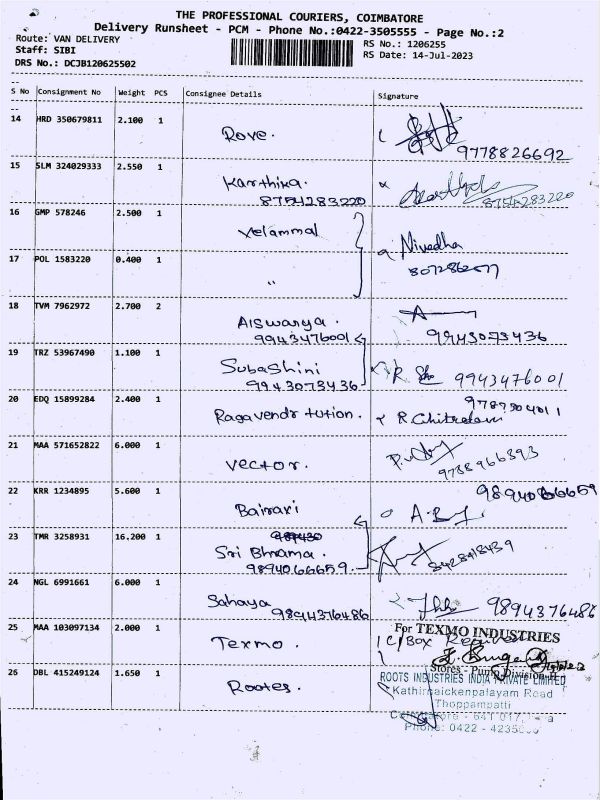 THE PROFESSIONAL COURIERS, COIMBATORE
Delivery Runsheet - PCM - Phone No.:0422-3505555 - Page No.:2
Route: VAN DELIVERY
RS No.: 1206255
Staff: SIBI
RS Date: 14-Jul-2023
DRS No.: DCJB120625502
S No Consignment No Weight PCS Consignee Details Signature
14 HRD 350679811 2.100 1 Rove.
9778826692
15 SLM 324029333 2.550 1 Karthika.
8754283220 8754283220
16 GMP 578246 2.500 1 Velammal Nivedha
17 POL 1583220 0.400 1 "
18 TVM 7962972 2.700 2 Aiswarya.
9943476001 9943073436
19 TRZ 53967490 1.100 1 Subashini
9943073436 9943476001
20 EDQ 15899284 2.400 1 Ragavendr tution.
21 MAA 571652822 6.000 1 Vector.
9788966393
22 KRR 1234895 5.600 1 Bairavi
9894066659
23 TMR 3258931 16.200 1 Sri Bhrama.
9894066659 8428418439
24 NGL 6991661 6.000 1 Sahaya
9894376486 9894376486
25 MAA 103097134 2.000 1 Texmo.
For TEXMO INDUSTRIES
Stores - Pump Division-II
26 DBL 415249124 1.650 1 Rootes.
ROOTS INDUSTRIES INDIA PRIVATE LIMITED
Kathirnaickenpalayam Road
Thoppampatti
Coimbatore - 641 017
Phone: 0422 - 4235